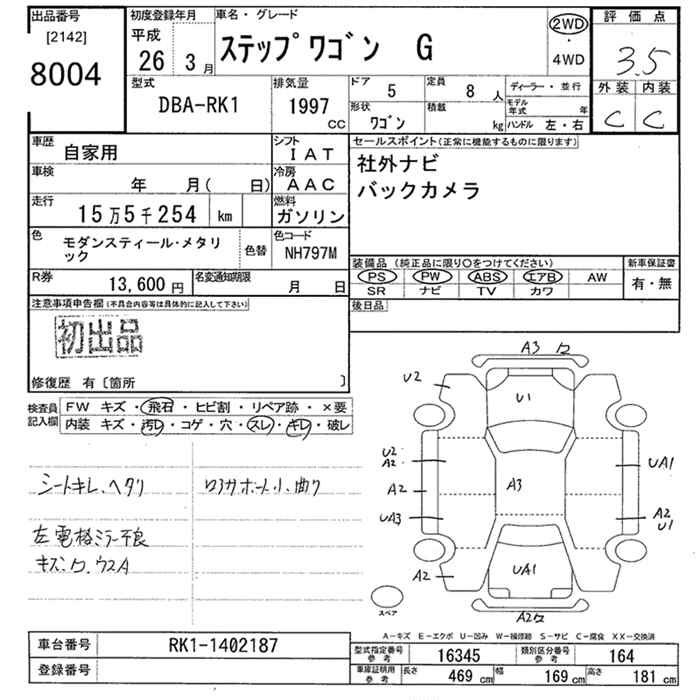 出品番号
[2142]
8004
初度登録年月
平成
26年 3月
車名・グレード
ステップワゴン G
2WD
・
4WD
評価点
3.5
外装 内装
C C
型式
DBA-RK1
排気量
1997
CC
ドア 5
定員 8人
形状 ワゴン
積載 kg
ディーラー・並行
モデル年式 年
ハンドル 左・右
車歴 自家用
シフト IAT
車検 年 月( 日)
冷房 AAC
走行 15万5千254 km
燃料 ガソリン
色 モダンスティール・メタリック
色替
色コード NH797M
R券 13,600円
名変通知期限 月 日
セールスポイント(正常に機能するものに限ります)
社外ナビ
バックカメラ
装備品(純正品に限り○をつけてください)
新車保証書
PS PW ABS エアB AW
SR ナビ TV カワ
有・無
後日品
注意事項申告欄(不具合内容等は具体的に記入して下さい)
初出品
修復歴 有〔箇所 〕
検査員記入欄
FW キズ・飛石・ヒビ割・リペア跡・×要
内装 キズ・汚レ・コゲ・穴・スレ・キレ・破レ
シートキレ、ヘタリ
左電格ミラー不良
A3
U2
U1
U2
A2
A2
UA3
A3
UA1
A2
U1
A2
UA1
A2
スペア
A-キズ E-エクボ U-凹み W-補修跡 S-サビ C-腐食 XX-交換済
車台番号 RK1-1402187
登録番号
型式指定番号 参考 16345
類別区分番号 参考 164
車庫証明用 参考
長さ 469 cm
幅 169 cm
高さ 181 cm